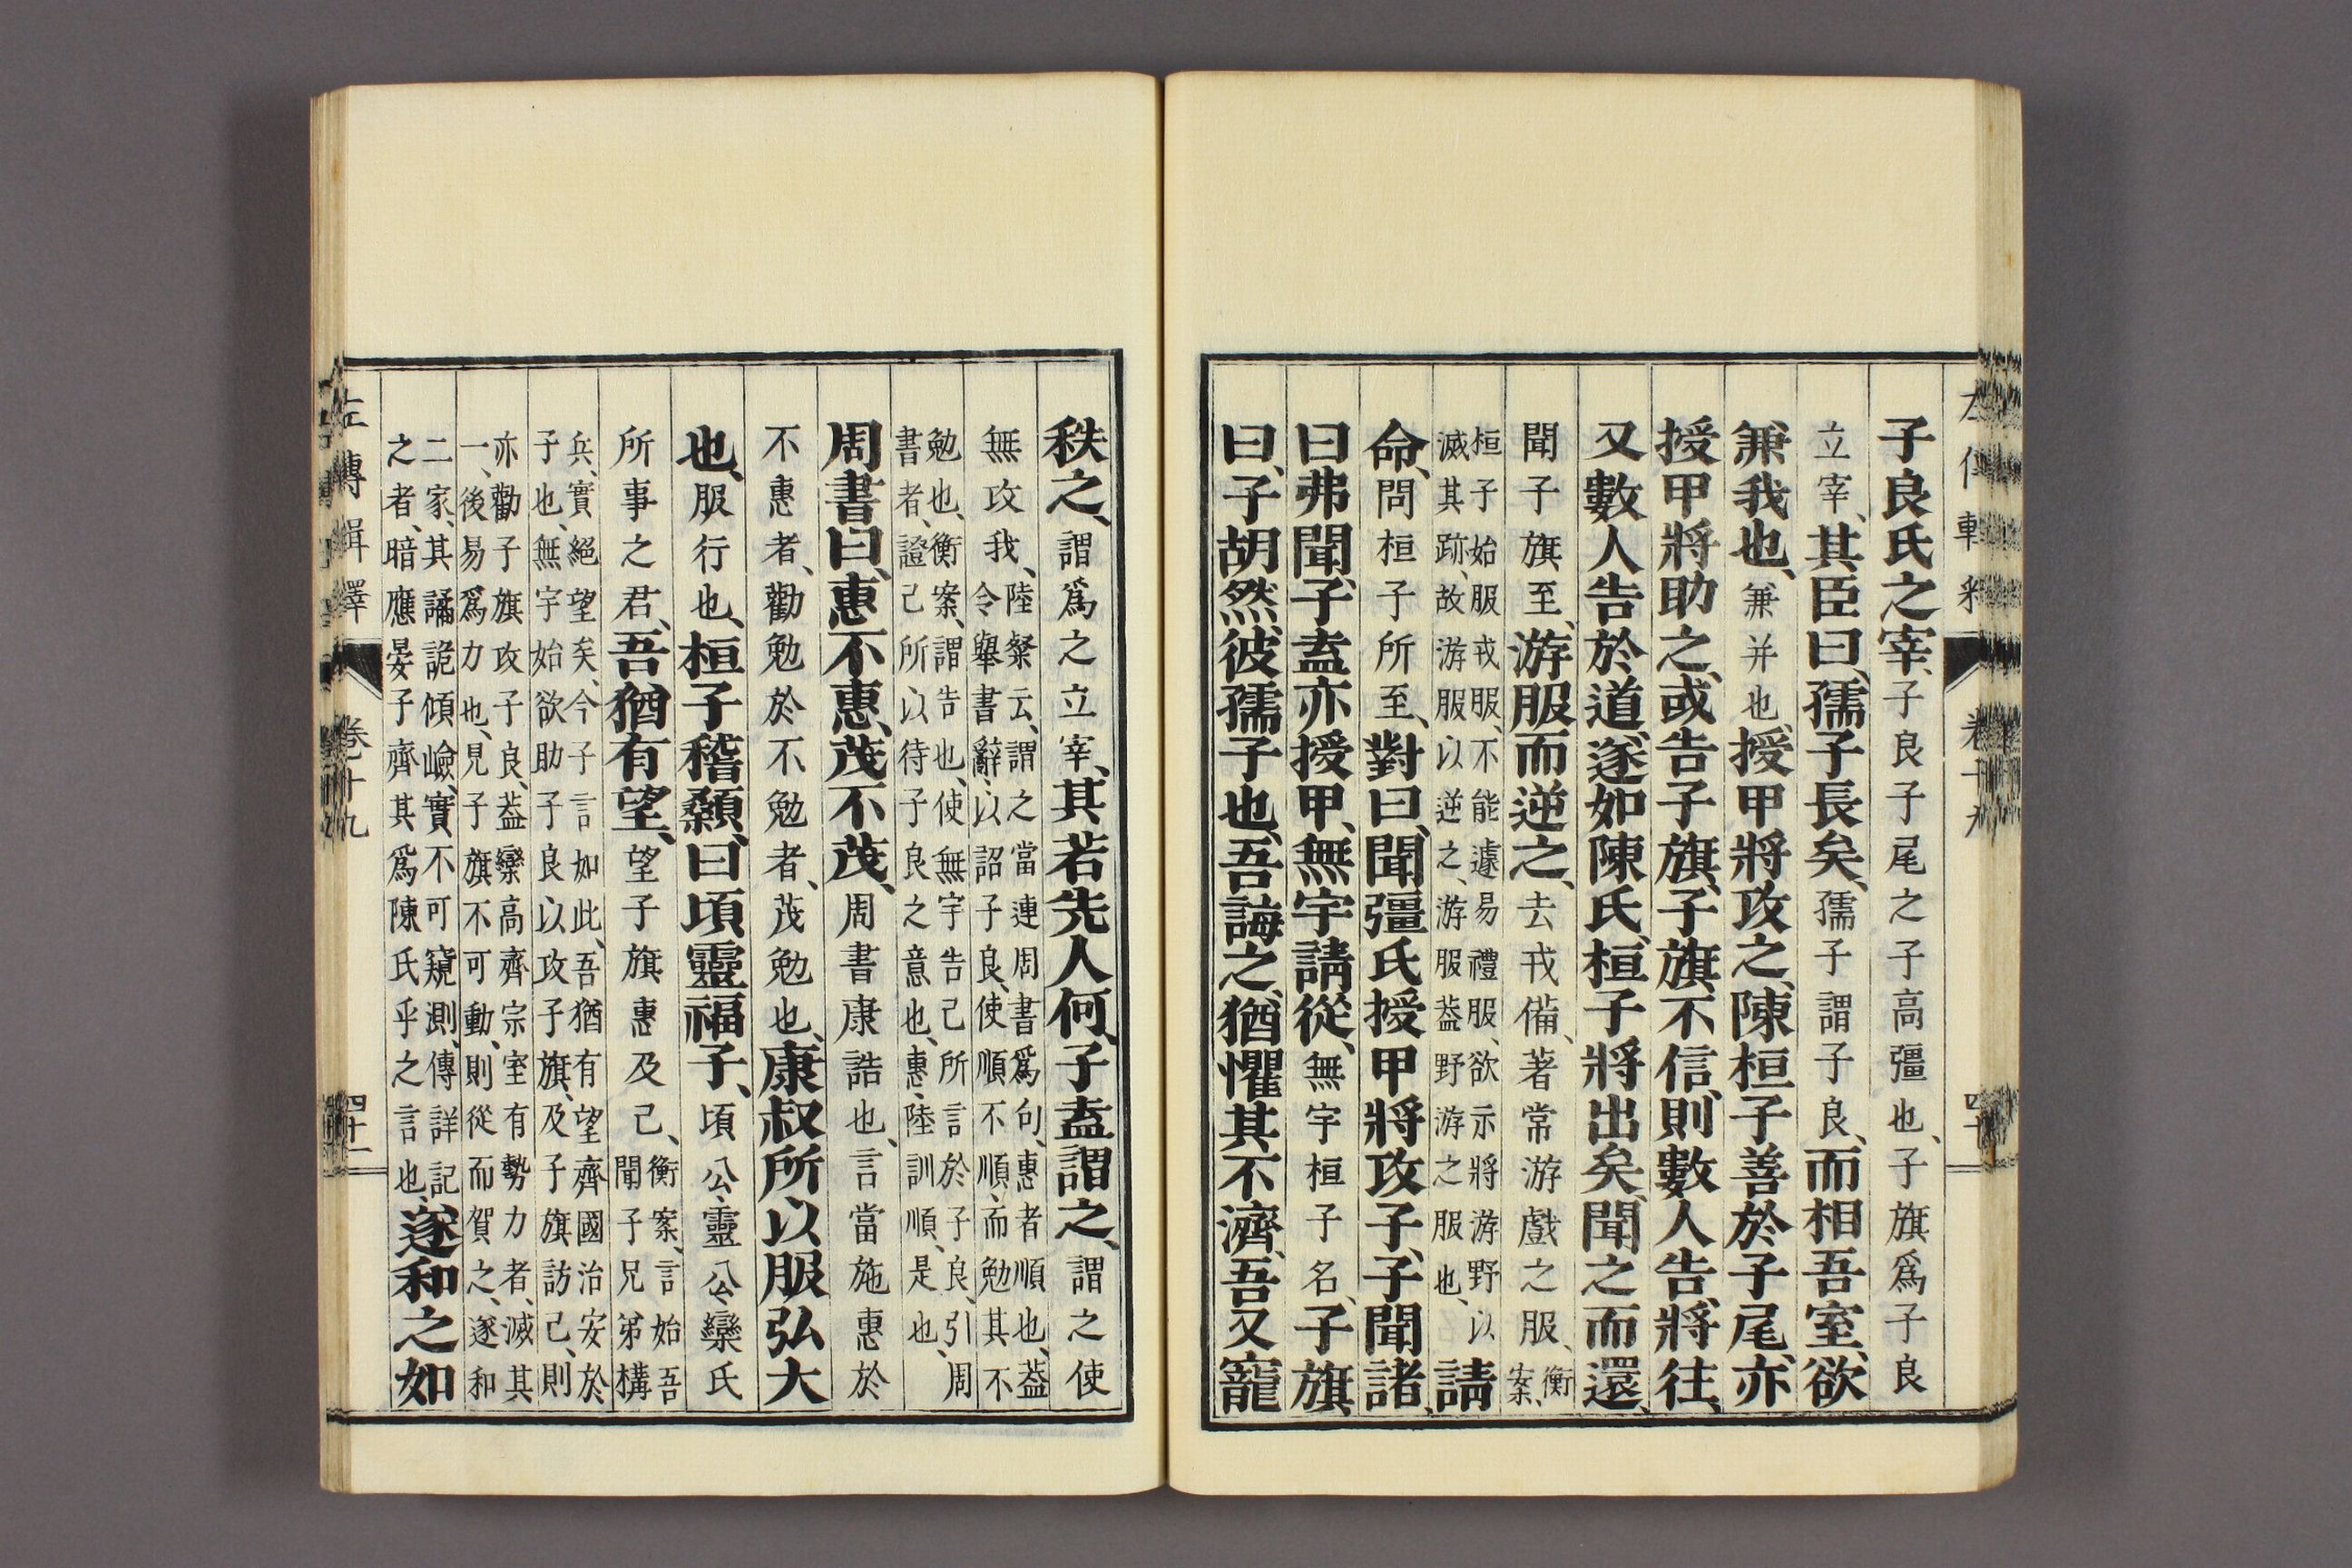 子良氏之宰、子良子尾之子高彊也、子旗爲子良
立宰、其臣曰、孺子長矣、孺子謂子良、而相吾室、欲
兼我也、兼并也、授甲將攻之、陳桓子善於子尾、亦
授甲將助之、或告子旗、子旗不信、則數人告、將往、
又數人告於道、遂如陳氏、桓子將出矣、聞之而還、
聞子旗至、游服而逆之、去戎備、著常游戲之服、衡案、
桓子始服戎服、不能遽易禮服、欲示將游野以
滅其跡、故游服以逆之、游服葢野游之服也、請
命、問桓子所至、對曰、聞彊氏授甲將攻子、子聞諸、
曰弗聞、子盍亦授甲、無宇請從、無宇桓子名、子旗
曰、子胡然、彼孺子也、吾誨之、猶懼其不濟、吾又寵
秩之、謂爲之立宰、其若先人何、子盍謂之、謂之使
無攻我、陸粲云、謂之當連周書爲句、惠者順也、葢
令舉書辭、以詔子良、使順不順、而勉其不
勉也、衡案、謂告也、使無宇告己所言於子良、引周
書者、證己所以待子良之意也、惠、陸訓順、是也、
周書曰、惠不惠、茂不茂、周書康誥也、言當施惠於
不惠者、勸勉於不勉者、茂勉也、康叔所以服弘大
也、服行也、桓子稽顙、曰頃靈福子、頃公靈公欒氏
所事之君、吾猶有望、望子旗惠及己、衡案、言始吾
聞子兄弟構
兵、實絕望矣、今子言如此、吾猶有望齊國治安於
子也、無宇始欲助子良以攻子旗、及子旗訪己、則
亦勸子旗攻子良、葢欒高齊宗室有勢力者、滅其
一、後易爲力也、見子旗不可動、則從而賀之、遂和
二家、其譎詭傾嶮、實不可窺測、傳詳記
之者、暗應晏子齊其爲陳氏乎之言也、遂和之如
左傳輯釋 卷十九 四十一